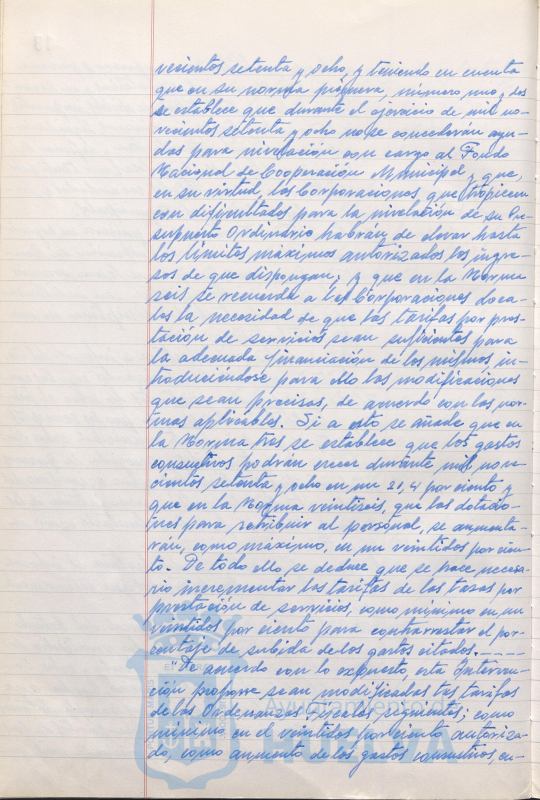 vecientos setenta y ocho, y teniendo en cuenta
que en su norma primera, número uno y dos
se establece que durante el ejercicio de mil no-
vecientos setenta y ocho no se concederán ayu-
das para nivelación con cargo al Fondo
Nacional de Cooperación Municipal y que,
en su virtud, las Corporaciones que tropiecen
con dificultades para la nivelación de su Pre-
supuesto Ordinario habrán de elevar hasta
los límites máximos autorizados los ingre-
sos de que dispongan; y que en la Norma
seis se recuerda a las Corporaciones Loca-
les la necesidad de que las tarifas por pres-
tación de servicios sean suficientes para
la adecuada financiación de los mismos, in-
troduciéndose para ello las modificaciones
que sean precisas, de acuerdo con las nor-
mas aplicables. Si a esto se añade que en
la Norma tres se establece que los gastos
consuntivos podrán crecer durante mil nove-
cientos setenta y ocho en un 21,4 por ciento y
que en la Norma veintiseis, que las dotacio-
nes para retribuir al personal, se aumenta-
rán, como máximo, en un veintidos por cien-
to. De todo ello se deduce que se hace necesa-
rio incrementar las tarifas de las tasas por
prestación de servicios, como mínimo en un
veintidos por ciento para contrarrestar el por-
centaje de subida de los gastos citados.-----
"De acuerdo con lo expuesto, esta Interven-
ción propone sean modificadas las tarifas
de las Ordenanzas Fiscales siguientes; como
mínimo, en el veintidos por ciento autoriza-
do, como aumento de los gastos consuntivos, en-
Ayuntamiento de
HUELVA